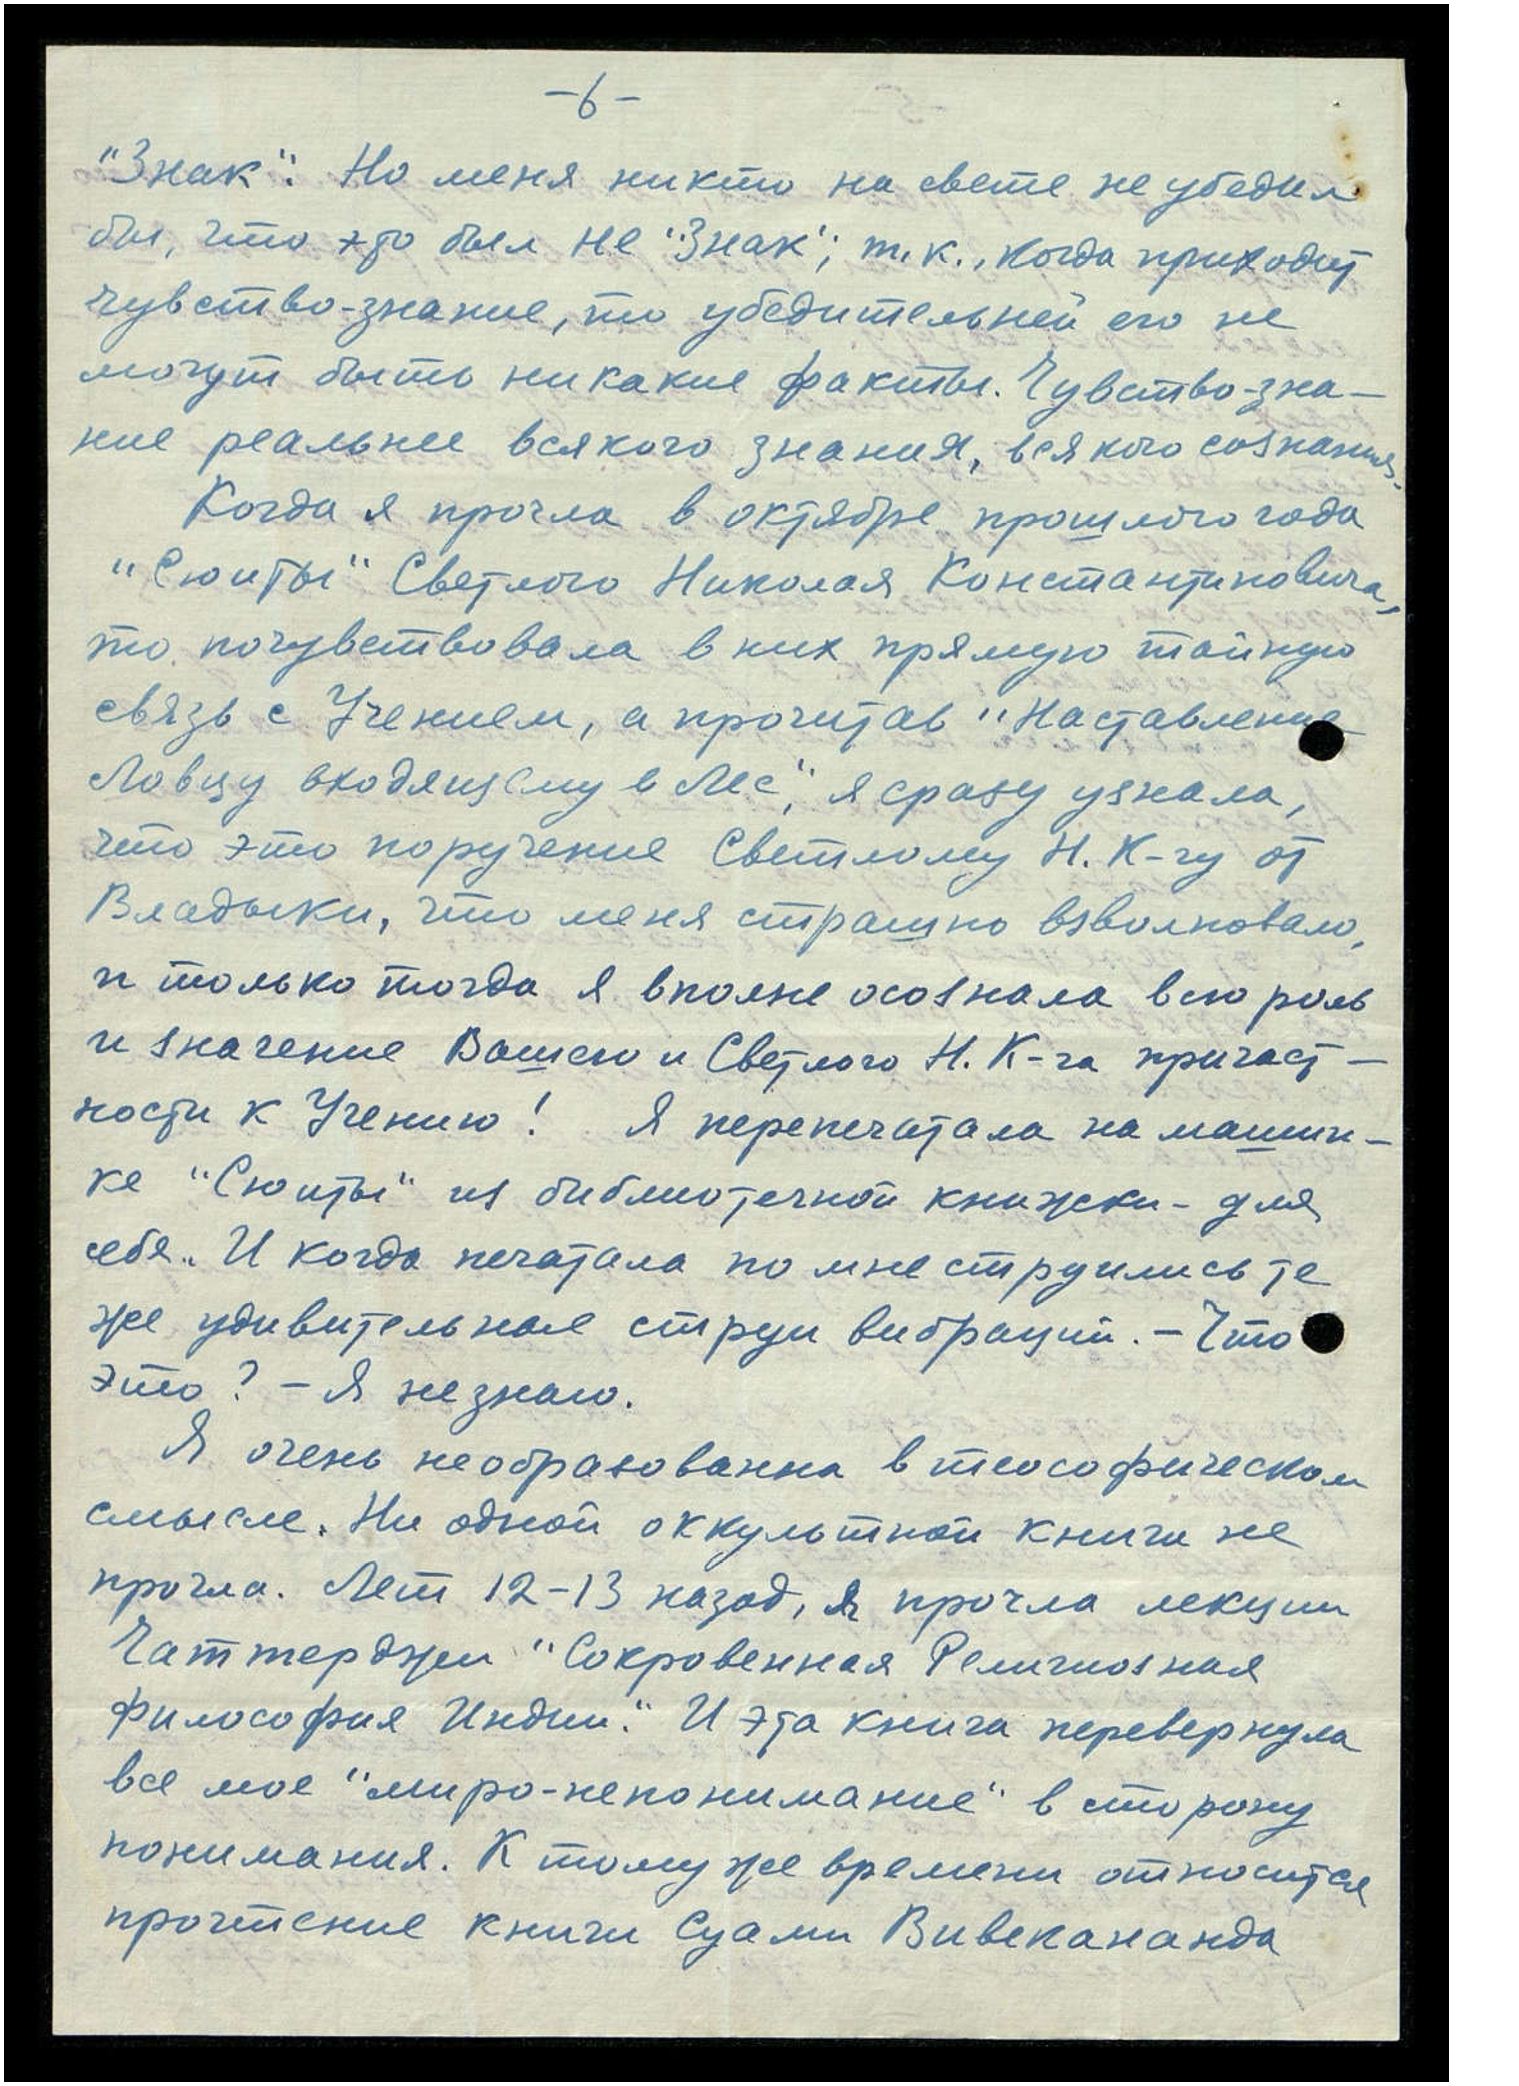 -6-
"Знак". Но меня никто на свете не убедил
бы, что это был не "Знак", т.к., когда приходит
чувство-знание, то убедительней его не
могут быть никакие факты. Чувство-зна-
ние реальнее всякого знания, всякого сознания.
Когда я прочла в октябре прошлого года
"Сюиты" Светлого Николая Константиновича,
то почувствовала в них прямую тайную
связь с Учением, а прочитав "Наставление
Ловцу входящему в Лес", я сразу узнала,
что это поручение Светлому Н. К-чу от
Владыки, что меня страшно взволновало,
и только тогда я вполне осознала всю роль
и значение Вашей и Светлого Н. К-ча причаст-
ности к Учению! Я перепечатала на машин-
ке "Сюиты" из библиотечной книжки - для
себя. И когда печатала по мне струились те
же удивительные струи вибраций. - Что
это? - Я не знаю.
Я очень необразованна в теософическом
смысле. Ни одной оккультной книги не
прочла. Лет 12-13 назад, я прочла лекции
Чаттерджи "Сокровенная Религиозная
Философия Индии". И эта книга перевернула
все мое "миро-непонимание" в сторону
понимания. К тому же времени относится
прочтение книги Суами Вивекананда